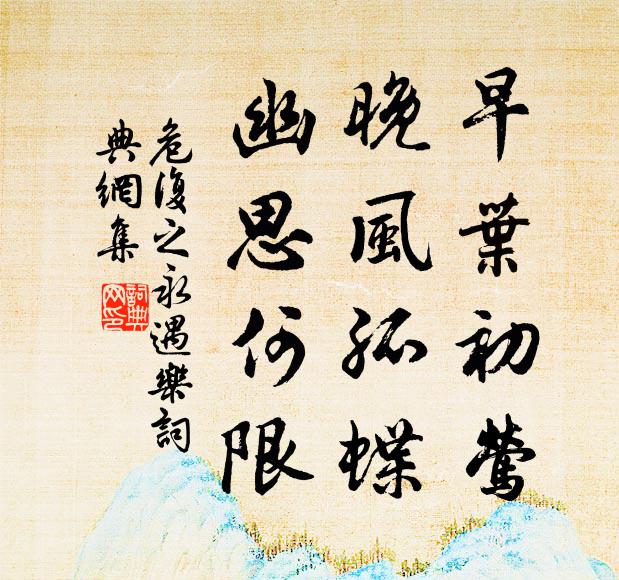 早葉初鶯
晚風孤蝶
幽思何限
危復之永遇樂詞
典網集
詞典網印